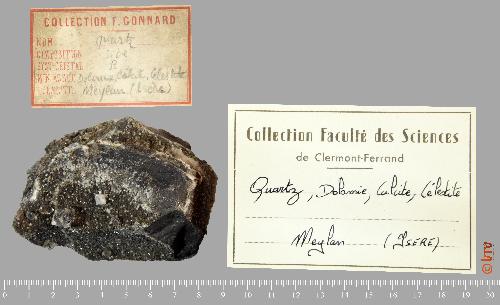 COLLECTION F. GONNARD
NOM Quartz
COMPOSITION
SYST. CRISTAL. R
MIN. ASSOC. Dolomie, Calcite, Célestite
Meylan (Isère)
Collection Faculté des Sciences
de Clermont-Ferrand
Quartz, Dolomie, Calcite, Célestite
Meylan (ISERE)
0 1 2 3 4 5 6 7 8 9 10 11 12 13 14 15 16 17 18 19 20